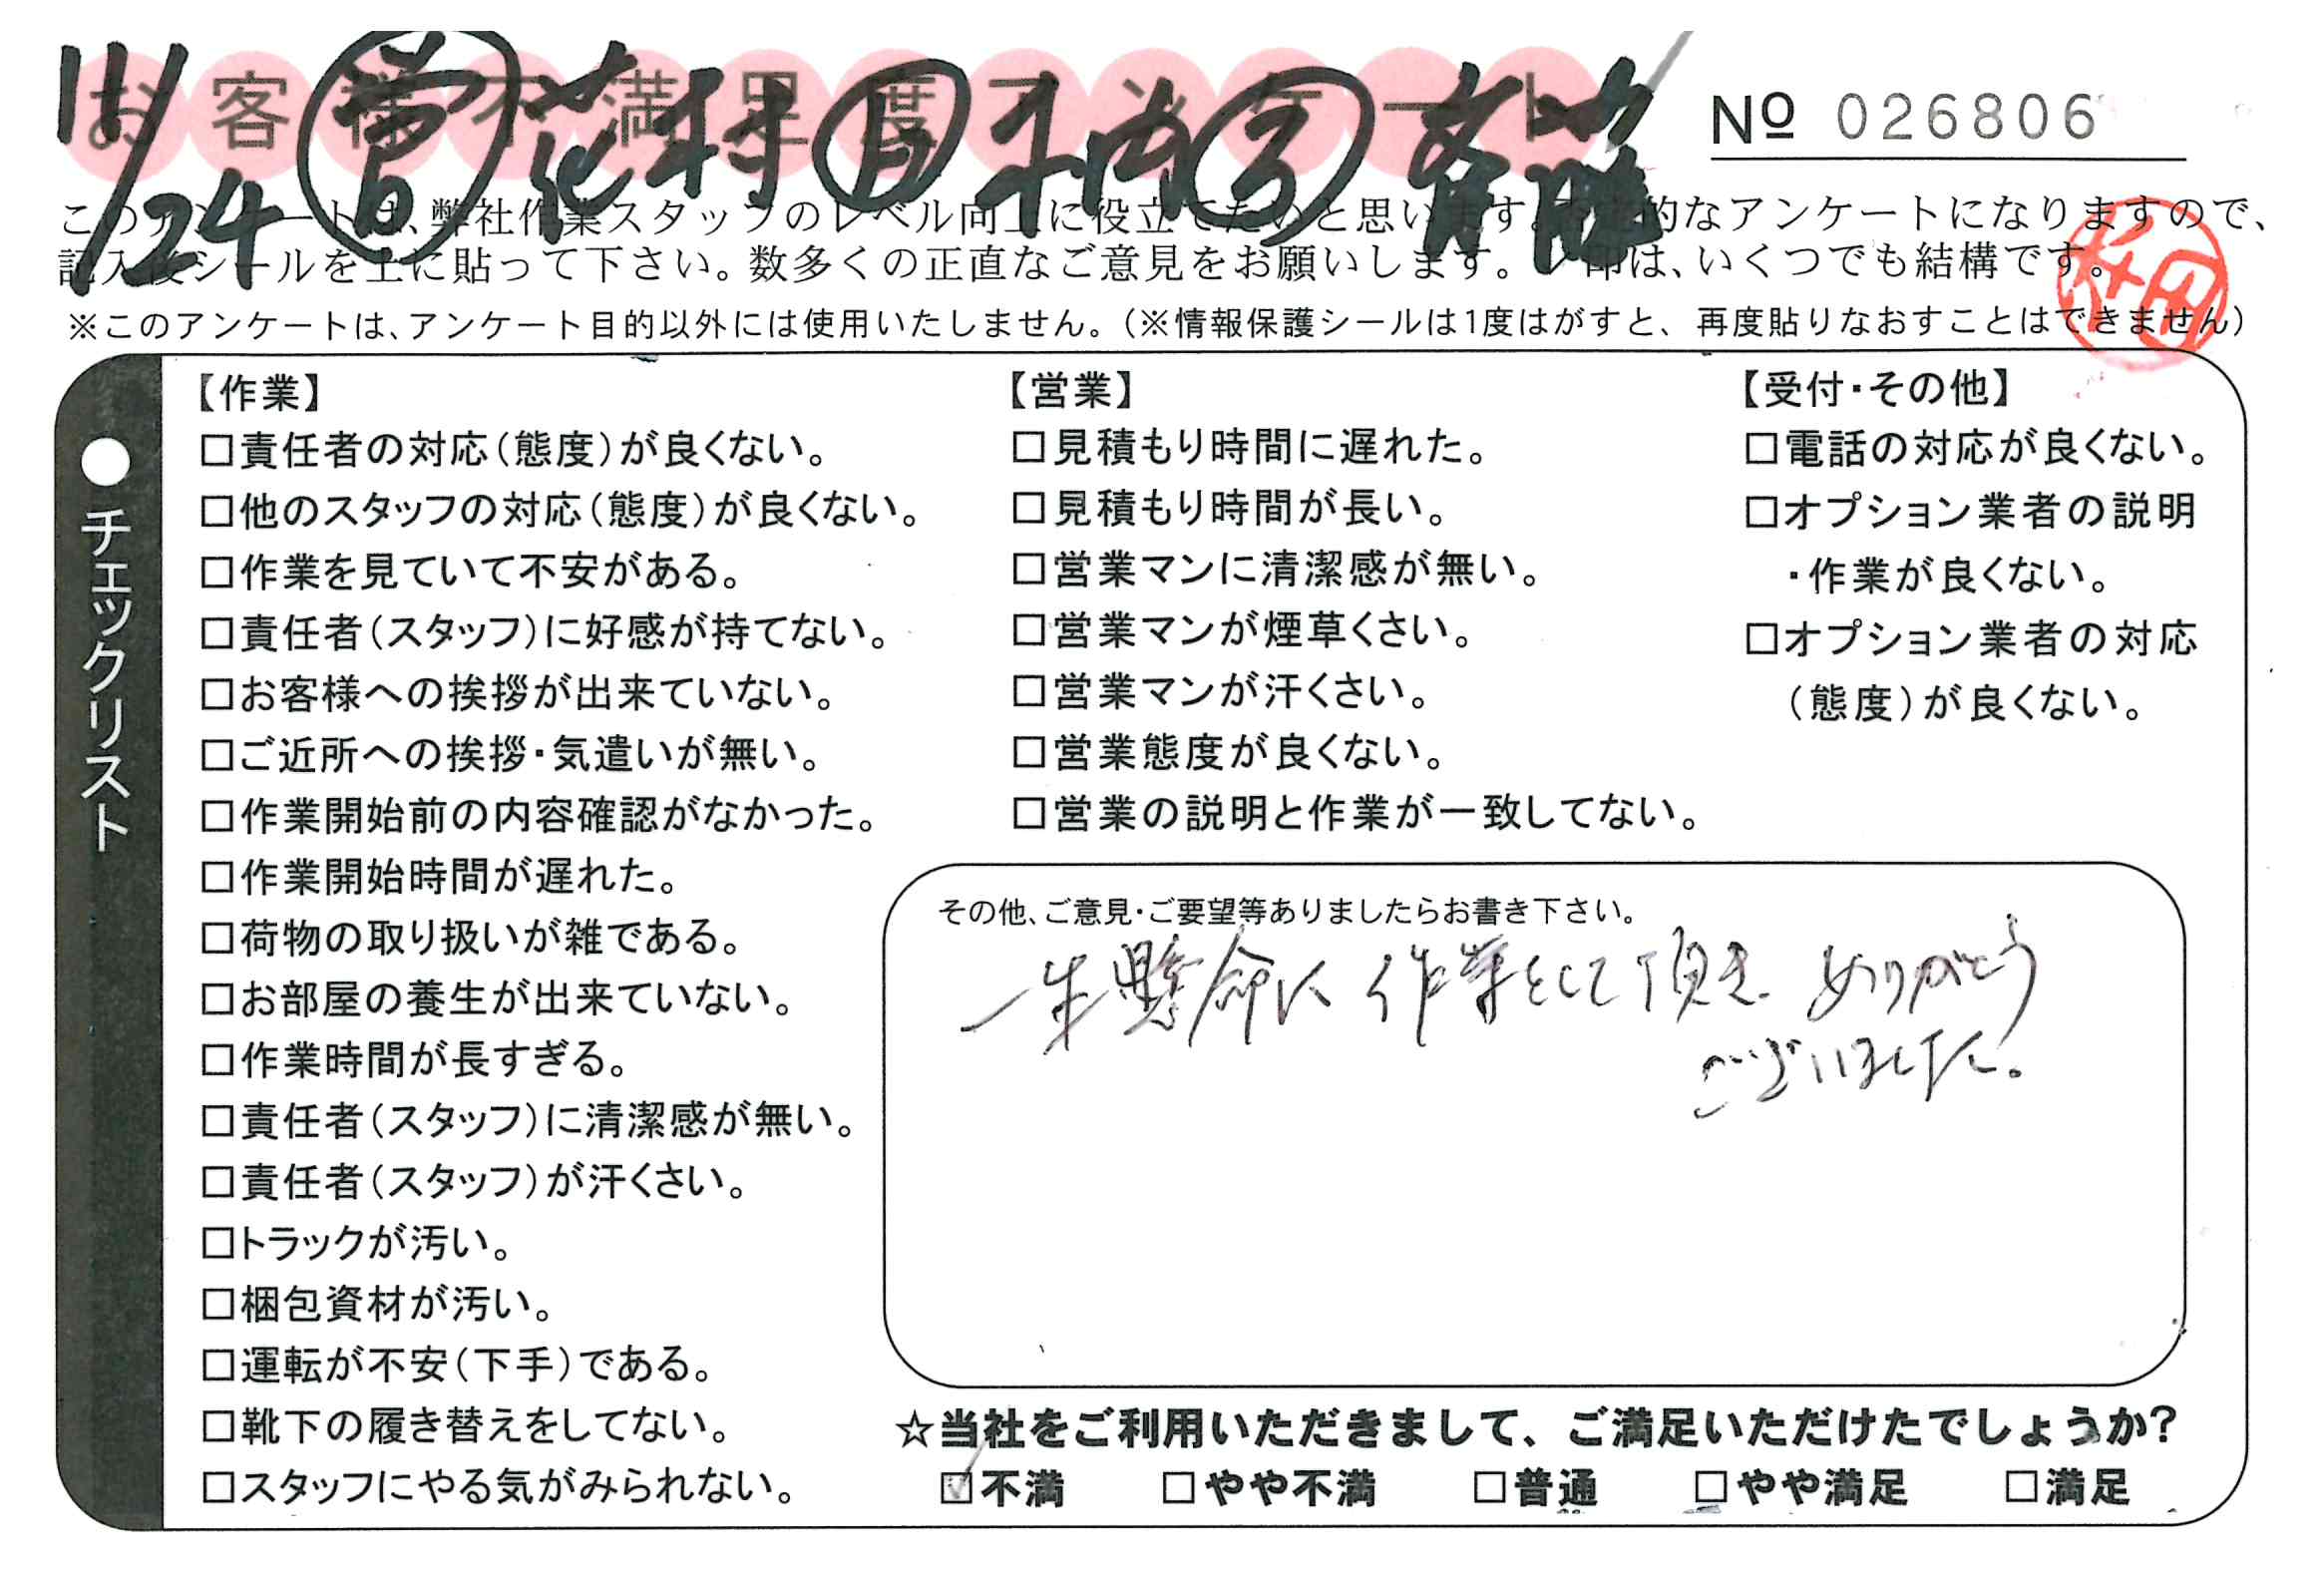 お客様不満足度アンケート
11/24 営 花村 日 斉藤
№ 026806
このアンケートは、弊社作業スタッフのレベル向上に役立てたいと思います。的なアンケートになりますので、
記入後シールを上に貼って下さい。数多くの正直なご意見をお願いします。レ印は、いくつでも結構です。
※このアンケートは、アンケート目的以外には使用いたしません。（※情報保護シールは1度はがすと、再度貼りなおすことはできません）
●チェックリスト
【作業】
□責任者の対応（態度）が良くない。
□他のスタッフの対応（態度）が良くない。
□作業を見ていて不安がある。
□責任者（スタッフ）に好感が持てない。
□お客様への挨拶が出来ていない。
□ご近所への挨拶・気遣いが無い。
□作業開始前の内容確認がなかった。
□作業開始時間が遅れた。
□荷物の取り扱いが雑である。
□お部屋の養生が出来ていない。
□作業時間が長すぎる。
□責任者（スタッフ）に清潔感が無い。
□責任者（スタッフ）が汗くさい。
□トラックが汚い。
□梱包資材が汚い。
□運転が不安（下手）である。
□靴下の履き替えをしてない。
□スタッフにやる気がみられない。
【営業】
□見積もり時間に遅れた。
□見積もり時間が長い。
□営業マンに清潔感が無い。
□営業マンが煙草くさい。
□営業マンが汗くさい。
□営業態度が良くない。
□営業の説明と作業が一致してない。
【受付・その他】
□電話の対応が良くない。
□オプション業者の説明
・作業が良くない。
□オプション業者の対応
（態度）が良くない。
その他、ご意見・ご要望等ありましたらお書き下さい。
一生懸命に作業をして頂き、ありがとう
ございました。
☆当社をご利用いただきまして、ご満足いただけたでしょうか?
☑不満 □やや不満 □普通 □やや満足 □満足